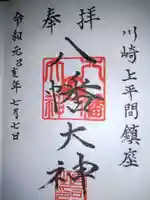 川崎上平間鎮座
奉拝
八幡大神
令和元己亥年 七月七日